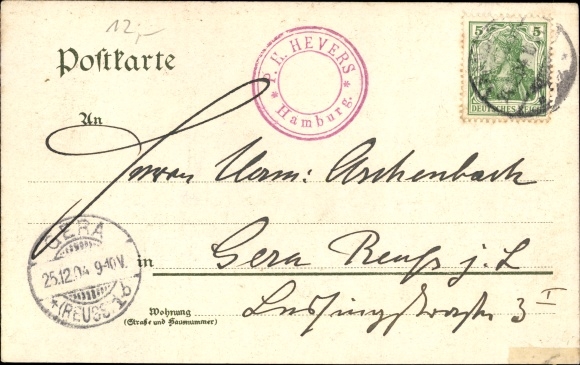 12,-
Postkarte
HEYERS
* Hamburg. *
5 5
DEUTSCHES REICH
An
Herrn Herm: Aschenbach
GERA
25.12.04 9-10V.
* (REUSS) 1b
in Gera Reuß j. L
Wohnung
(Straße und Hausnummer)
Lessingstraße 3 I